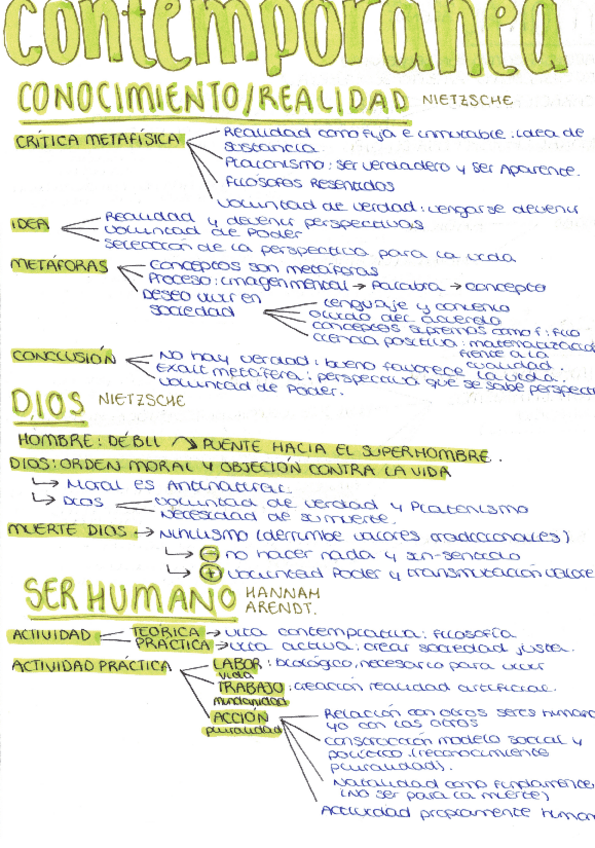 contemporánea
CONOCIMIENTO/REALIDAD NIETZSCHE
CRÍTICA METAFÍSICA
Realidad como fija e inmutable: idea de
sustancia.
Platonismo: ser verdadero y ser Aparente.
Filósofos Resentidos
Voluntad de verdad: vengarse devenir
IDEA
Realidad y devenir perspectivas
Voluntad de Poder
selección de la perspectiva para la vida
METÁFORAS
Conceptos son metáforas
Proceso: imagen mental → Palabra → concepto
Deseo vivir en
sociedad
Lenguaje y convenio
Olvido del acuerdo
conceptos supremos como f: filo
ciencia positiva: matematización
frente a la
cualidad.
CONCLUSIÓN
No hay verdad: bueno favorece la vida.
Exalt metáfora: perspectiva que se sabe perspecti
Voluntad de Poder.
DIOS NIETZSCHE
HOMBRE: DÉBIL → PUENTE HACIA EL SUPERHOMBRE.
DIOS: ORDEN MORAL Y OBJECIÓN CONTRA LA VIDA
↳ Moral es Antinatural.
↳ Dios
Voluntad de verdad y Platonismo
Necesidad de su muerte.
MUERTE DIOS → Nihilismo (derrumbe valores tradicionales)
↳ - no hacer nada y sin-sentido
↳ + voluntad Poder y transmutación valore
SER HUMANO HANNAH
ARENDT.
ACTIVIDAD
TEÓRICA → vita contemplativa: filosofía
PRÁCTICA → vita activa: crear sociedad justa.
ACTIVIDAD PRÁCTICA
LABOR: biológico, necesario para vivir
vida
TRABAJO: creación realidad artificial.
mundanidad
ACCIÓN
pluralidad
Relación con otros seres humano
yo con los otros
construcción modelo social y
político. (reconocimiento
pluralidad).
Natalidad como fundamento
(No ser para la muerte)
Actividad propiamente human